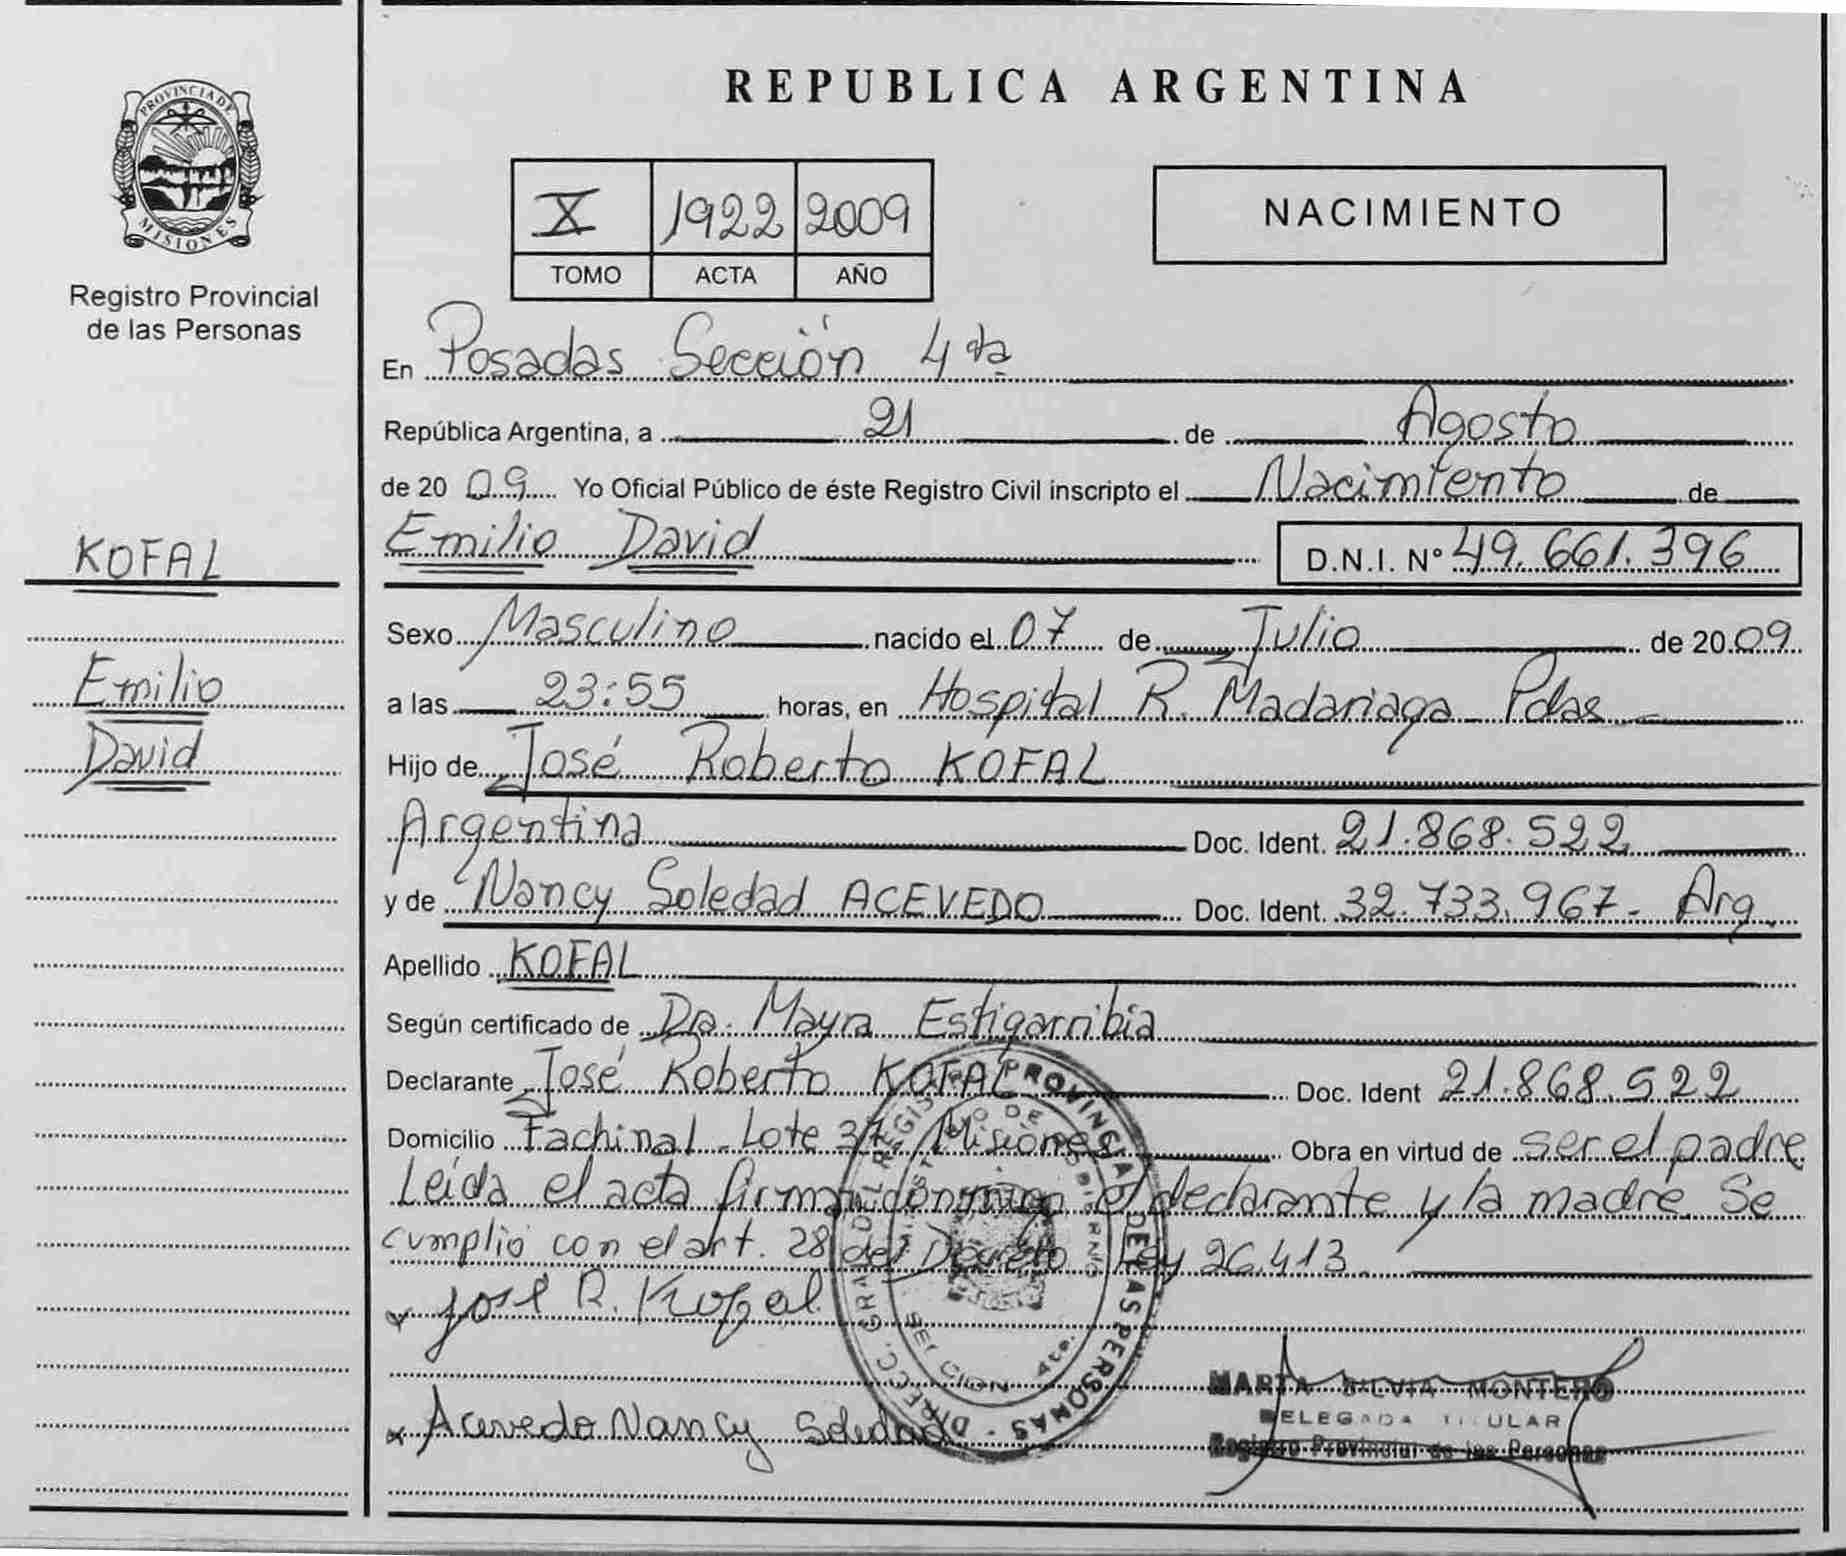 PROVINCIA DE
MISIONES
Registro Provincial
de las Personas
KOFAL
Emilio
David
REPUBLICA ARGENTINA
X 1922 2009
TOMO ACTA AÑO
NACIMIENTO
En Posadas Sección 4ta
República Argentina, a 21 de Agosto
de 20 09 Yo Oficial Público de éste Registro Civil inscripto el Nacimiento de
Emilio David D.N.I. Nº 49.661.396
Sexo Masculino nacido el 07 de Julio de 20 09
a las 23:55 horas, en Hospital R. Madariaga Pdas
Hijo de José Roberto KOFAL
Argentina Doc. Ident. 21.868.522
y de Nancy Soledad ACEVEDO Doc. Ident. 32.733.967- Arg.
Apellido KOFAL
Según certificado de Dra. Mayra Estigarribia
Declarante José Roberto KOFAL Doc. Ident 21.868.522
Domicilio Fachinal - Lote 37 Misiones Obra en virtud de ser el padre
Leída el acta firman conmigo el declarante y la madre. Se
cumplió con el art. 28 del Decreto Ley 26.413
x José R. Kofal
x Acevedo Nancy Soledad
DIRECC. GRAL. DEL REGISTRO PROVINCIAL DE LAS PERSONAS
MINISTERIO DE GOBIERNO
SECCION 4ta.
MARTA SILVIA MONTERO
DELEGADA TITULAR
Registro Provincial de las Personas